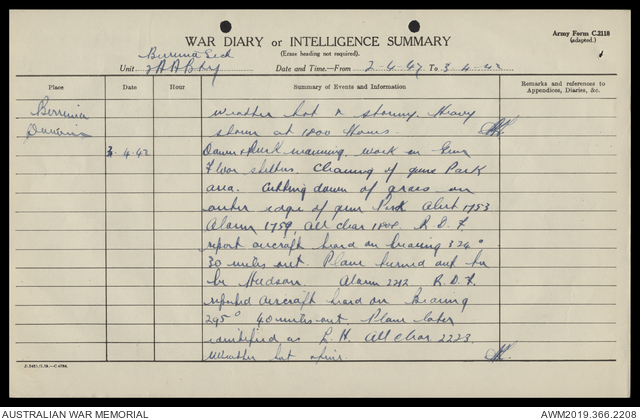 Army Form C.2118
(adapted.)
WAR DIARY or INTELLIGENCE SUMMARY
(Erase heading not required).
Berrima Sect
Unit 2 A A Bty Date and Time—From 2-4-42 To 3-4-42
Place Date Hour Summary of Events and Information Remarks and references to Appendices, Diaries, &c.
Berrima weather hot & stormy. Heavy
Darwin storm at 1800 Hours.
3.4.42 Dawn & Dusk manning. Work on Gun
Floor shelters. Cleaning of gun Park
area. Cutting down of grass on
outer edge of gun Park Alert 1753
Alarm 1759, All clear 1808. R.D.F.
report aircraft heard on bearing 324°
30 miles out. Plane turned out to
be Hudson. Alarm 2212 R.D.F.
reported aircraft heard on Bearing
295° 40 miles out Plane later
identified as L.H. All clear 2223.
Weather hot
AUSTRALIAN WAR MEMORIAL AWM2019.366.2208